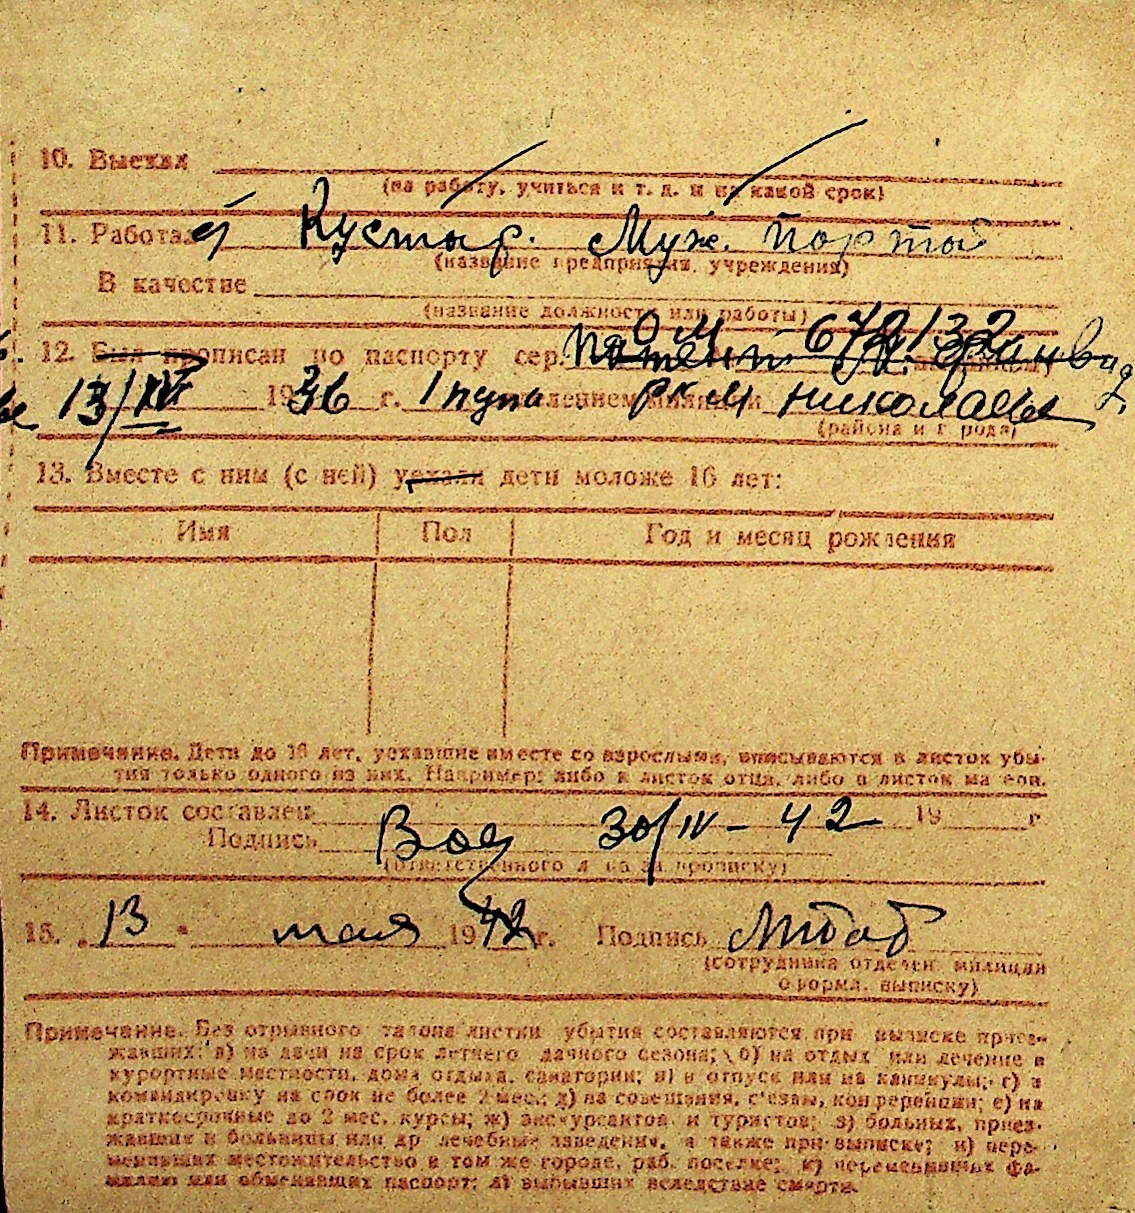 10. Выехал
(на работу, учиться и т. д. и на какой срок)
11. Работал Кустар. Муж. порт
(название предприятия, учреждения)
В качестве
(название должности или работы)
ОМ 672132
12. Был прописан по паспорту сер.
13/IV 1936 г. 1 пупа РКМ Николаев
(района и города)
13. Вместе с ним (с ней) уехали дети моложе 16 лет:
Имя Пол Год и месяц рождения
Примечание. Дети до 16 лет, уехавшие вместе со взрослыми, вписываются в листок убы-
тия только одного из них. Например: либо в листок отца, либо в листок матери.
14. Листок составлен 30/IV - 42 19 г
Подпись
(ответственного лица за прописку)
15. „13" мая 1942 г. Подпись
(сотрудника отделен. милиции
оформл. выписку)
Примечание. Без отрывного талона листки убытия составляются при выписке приез-
жавших: а) на дачи на срок летнего дачного сезона; б) на отдых или лечение в
курортные местности, дома отдыха, санатории; в) в отпуск или на каникулы; г) в
командировку на срок не более 2 мес.; д) на совещания, с'езды, конференции; е) на
краткосрочные до 2 мес. курсы; ж) экскурсантов и туристов; з) больных, приез-
жавших в больницы или др лечебные заведения, а также при выписке; и) пере-
менивших местожительство в том же городе, раб. поселке; к) переменивших фа-
милию или обменявших паспорт; л) выбывших вследствие смерти.